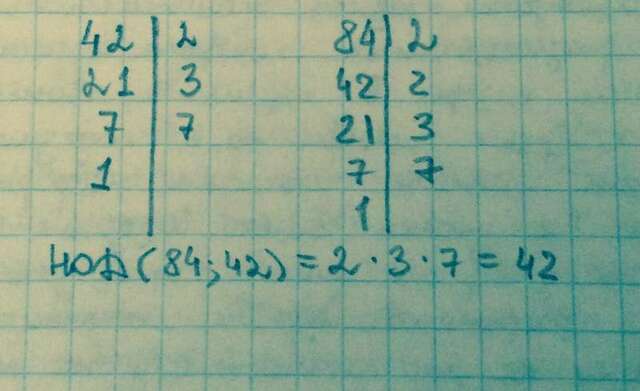 42 | 2 84 | 2
21 | 3 42 | 2
7 | 7 21 | 3
1 | 7 | 7
1 |
НОД(84;42) = 2·3·7 = 42